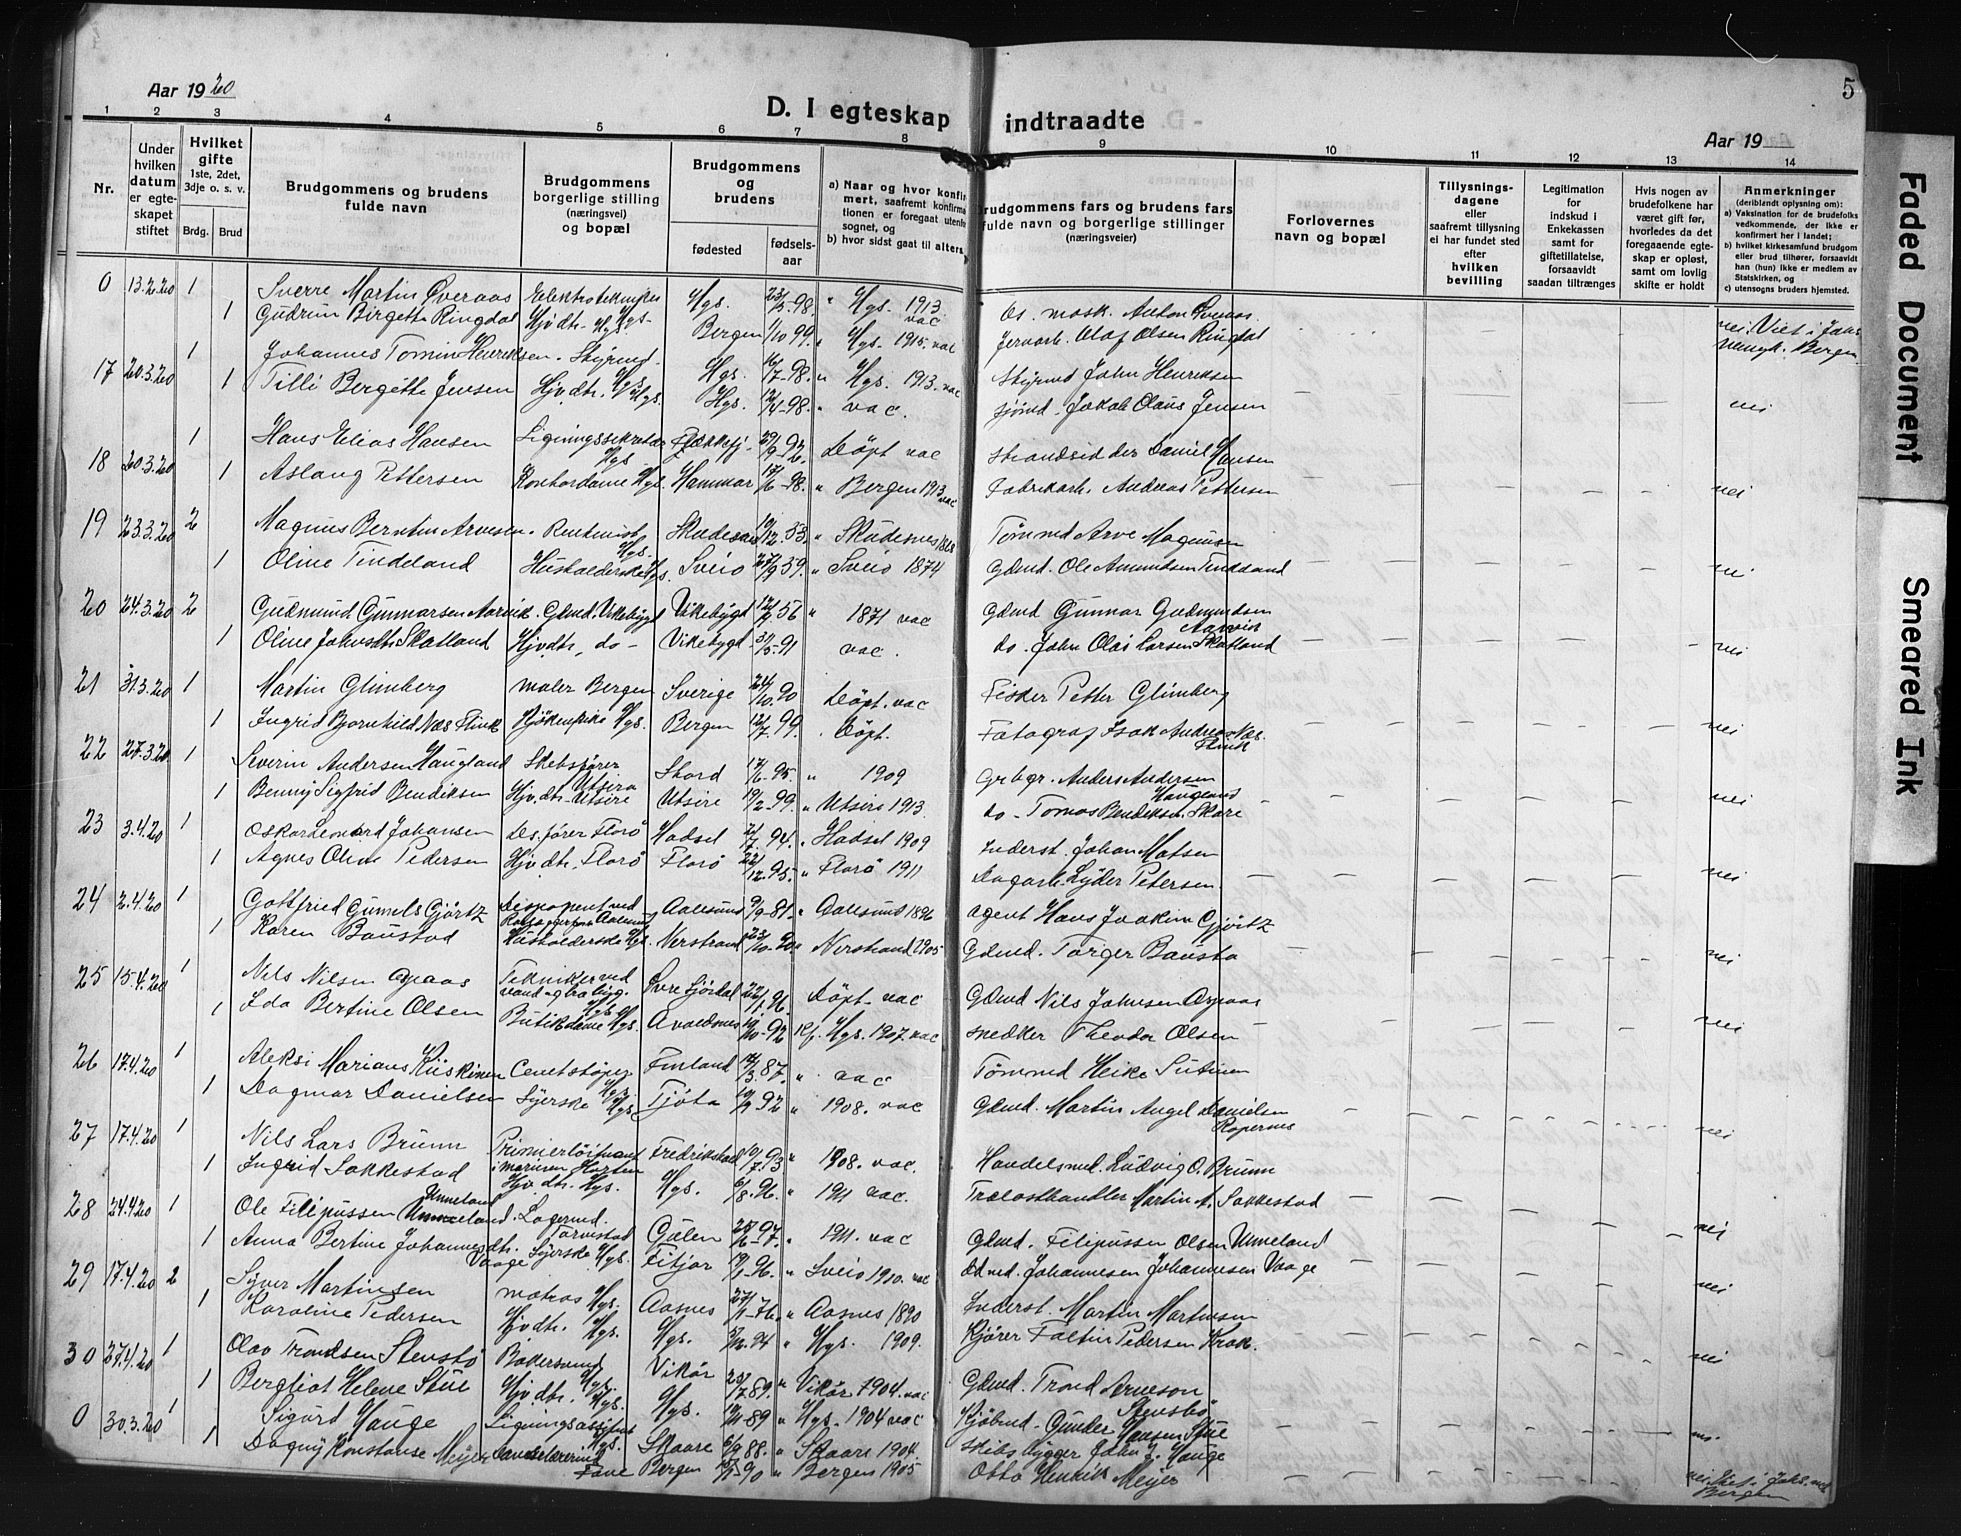 Aar 1920
D. I egteskap indtraadte
Aar 19
5
1 2 3 4 5 6 7 8 9 10 11 12 13 14
Nr.
Under hvilken datum er egteskapet stiftet
Hvilket gifte 1ste, 2det, 3dje o. s. v.
Brdg. Brud
Brudgommens og brudens fulde navn
Brudgommens borgerlige stilling (næringsvei) og bopæl
Brudgommens og brudens
fødested
fødselsaar
a) Naar og hvor konfirmert, saafremt konfirmationen er foregaat utenfor sognet, og
b) hvor sidst gaat til alters.
Brudgommens fars og brudens fars fulde navn og borgerlige stillinger (næringsveier)
Forlovernes navn og bopæl
Tillysningsdagene eller saafremt tillysning ei har fundet sted efter hvilken bevilling
Legitimation for indskud i Enkekassen samt for giftetillatelse, forsaavidt saadan tiltrænges
Hvis nogen av brudefolkene har været gift før, hvorledes da det foregaaende egteskap er opløst, samt om lovlig skifte er holdt
Anmerkninger (deriblandt oplysning om):
a) Vaksination for de brudefolks vedkommende, der ikke er konfirmert her i landet;
b) hvilket kirkesamfund brudgom eller brud tilhører, forsaavidt han (hun) ikke er medlem av Statskirken, og
c) utensogns bruders hjemsted.
0 13.2.20 1 Sverre Martin Øveraas Hgs. 23/5-98. " Hgs. 1913 vac
1 Gudrun Birgette Ringdal Hjv.dtr. Hgs. Bergen 1/10 99. " Hgs. 1915. vac Olaf Olsen Ringdal
17 20.3.20 1 Johannes Tomin Henriksen. Styrmd. Hgs. Hgs. 16/7-98. " Hgs. 1913. vac Styrmd John Henriksen
1 Tilli Bergitte Jensen Hjv.dtr. Hgs. Hgs. 12/4-98. " vac. sjømd. Jakob Olaus Jensen nei
18 20.3.20 1 Hans Elias Hansen Ligningssekretær Hgs Flekkefj. 29/9-92. Döpt vac Strandsidder Daniel Hansen
1 Aslaug Pettersen Kontordame Hgs. Hammar 17/6-98. " Bergen 1913. vac Fabrikarb. Andreas Pettersen nei
19 23.3.20 2 Magnus Berntin Arvesen. Rentenist Hgs. Skudesnes 10/12-53. " Skudesnes 1868 Tømmd Arve Magnusen
1 Oline Tindeland Husholderske Hgs. Sveio 27/9 59. " Sveio 1874 Gdmd. Ole Amundsen Tindeland nei
20 24.3.20 2 Gudmund Gunnarsen Aarvik. Gdmd. Vikebygd Vikebygd 12/7 56 " 1871 vac Gdmd Gunnar Gudmundsen Aarvik
1 Oline Johnsdtr Skatland Hjv.dtr. do- Vikebygd 31/5-91 vac. do. John Olai Larsen Skatland nei
21 31.3.20 1 Martin Glimberg maler Bergen Sverige 24/10. 90 Döpt. vac Fisker Petter Glimberg
1 Ingrid Bjornhild Næs Flink Kjökenpike Hgs. Bergen 12/7. 99. Döpt. Fotograf Isak Andreas Næs. Flink nei
22 27.3.20 1 Severin Andersen Haugland Skibsfører Utsira Stord 17/6-95. " 1909 Grbgr. Anders Andersen Haugland
1 Benny Sigfrid Bendiksen Hjv.dtr. Utsire Utsire 19/2-99. " Utsire 1913. do- Tomas Bendiksen. Skare nei
23 3.4.20 1 Oskar Leonard Johansen Les.fører Florø Hadsel 21/7. 94. " Hadsel 1909 Inderst. Johan Matsen
1 Agnes Oline Pedersen Hjv.dtr. Florø Florø 22/12-95. " Florø 1911 Dagarb. Lyder Petersen. nei
24 2.4.20 1 Gottfried Gunnels Gjörtz Aalesund 9/9-81. " Aalesund 1896 agent Hans Joakim Gjörtz
1 Karen Baustad Husholderske Hgs. Nerstrand 23/10-90 " Nerstrand 1905 Gdmd. Torger Baustad nei
25 15.4.20 1 Nils Nilsen Opaas Tekniker ved Øvre Sjördal 22/1. 96. Döpt. vac Gdmd Nils Johnsen Opaas
1 Ida Bertine Olsen Butikdame Hgs. Avaldsnes 10/10-92 Kf. Hgs. 1907. vac snedker Theodor Olsen nei
26 17.4.20 1 Aleksi Marians Kuskinen Finland 12/3. 87. " vac Tømmd Heike Sutinen
1 Dagmar Danielsen Syerske Hgs. Tjøta 10/9 92 " 1908. vac Gdmd. Martin Angel Danielsen nei
27 17.4.20 1 Nils Lars Brunn Primierløitnant i marinen Horten Fredrikstad 10/7. 93 " 1908. vac. Handelsmd. Ludvig O. Brunn
1 Ingrid Sokkestad Hjv.dtr. Hgs. Hgs. 6/8. 96. " 1911 vac. Trælasthandler Martin A. Sokkestad nei
28 24.4.20 1 Ole Filipussen Unneland. Lagermd. Gulen 28/6-97. " 1911. vac Gdmd. Filipussen Olsen Unneland
1 Anna Bertine Johannesdtr. Vaage Syerske Hgs. Fitjar 19/1-96. " Sveio 1910. vac Johannesen Johannesen Vaage nei
29 17.4.20 2 Syver Martinsen matros Hgs. Aasnes 27/1-76. " Aasnes 1890 Inderst. Martin Martinsen
1 Karoline Pedersen Hjv.dtr. Hgs. Hgs. 94 " Hgs. 1909. Kjører Faltin Pedersen Krok. nei
30 27.4.20 1 Olav Trondsen Stensbø Bakersvend Hgs. Vikør 25/7 89. " Vikør 1904. vac Gdmd. Trond Arneson Stensbø
1 Bergliot Helene Stue Hjv.dtr. Hgs. Hgs. 89 " Hgs. 1904 vac Kjøbmd. Gunder Hansen Stue nei
0 30.3.20 1 Sigurd Hauge Ligningsassistent Hgs. Skaare 6/9 88. " Skaare 1904. skibsbygger John J. Hauge
1 Dagny Konstanse Meyer Fane Bergen 90 " Bergen 1905 Otto Henrik Meyer
Bergen
Faded Document
Smeared Ink